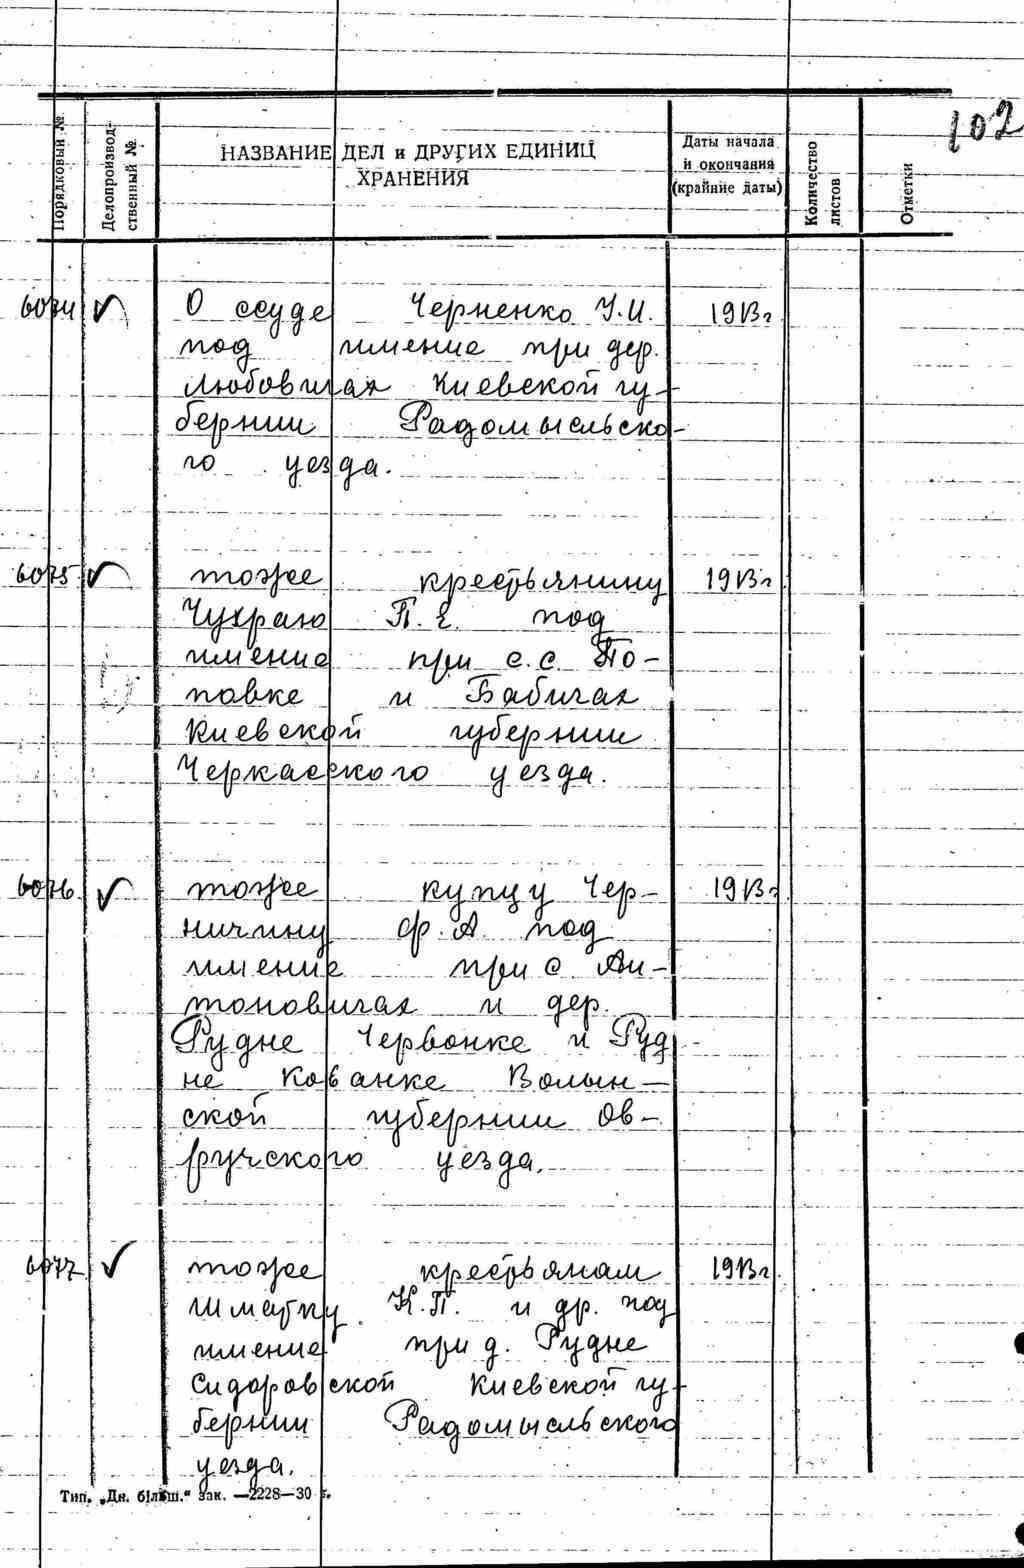 102
Порядковый №
Делопроизвод-
ственный №
НАЗВАНИЕ ДЕЛ и ДРУГИХ ЕДИНИЦ
ХРАНЕНИЯ
Даты начала
и окончания
(крайние даты)
Количество
листов
Отметки
6074 О ссуде Черненко У.И. 1913г
под имение при дер.
Любовичах Киевской гу-
бернии Радомысльско-
го уезда.
6075 тоже крестьянину 1913г
Чухраю П.Е. под
имение при с.с. По-
повке и Бабичах
Киевской губернии
Черкасского уезда.
6076 тоже купцу Чер- 1913г
ничину Ф.А. под
имение при с Ан-
тоновичах и дер.
Рудне Червонке и Руд
не Кованке Волын-
ской губернии Ов-
ручского уезда.
6077 тоже крестьянам 1913г
Шматку К.П. и др. под
имение при д. Рудне
Сидоровской Киевской гу-
бернии Радомысльского
уезда.
Тип. „Дн. більш.“ зак. —2228—30 г.